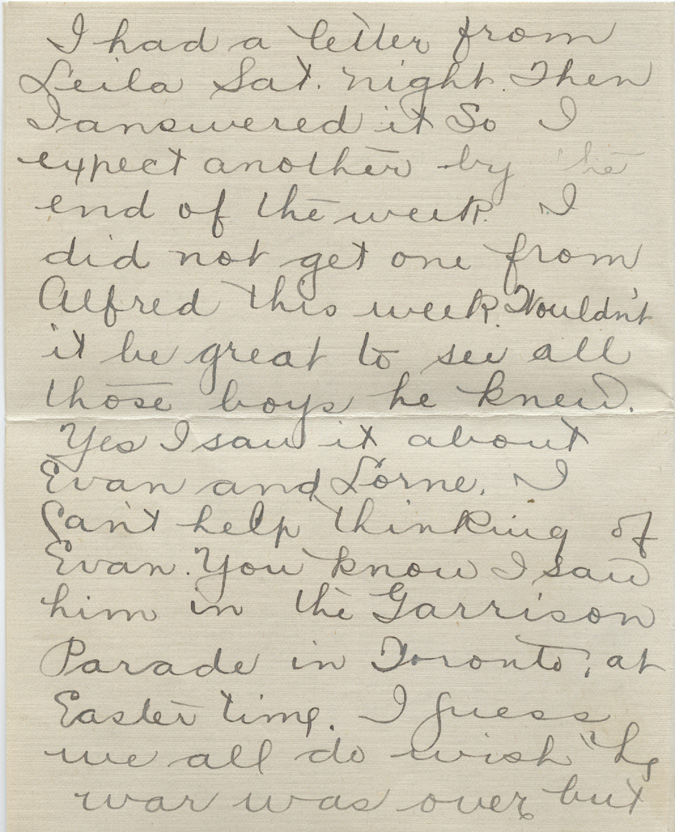 I had a letter from
Leila Sat. night. Then
I answered it So I
expect another by the
end of the week. I
did not get one from
Alfred this week. Wouldn't
it be great to see all
those boys he knew.
Yes I saw it about
Evan and Lorne. I
can't help thinking of
Evan. You know I saw
him in the Garrison
Parade in Toronto, at
Easter time. I guess
we all do wish the
war was over but